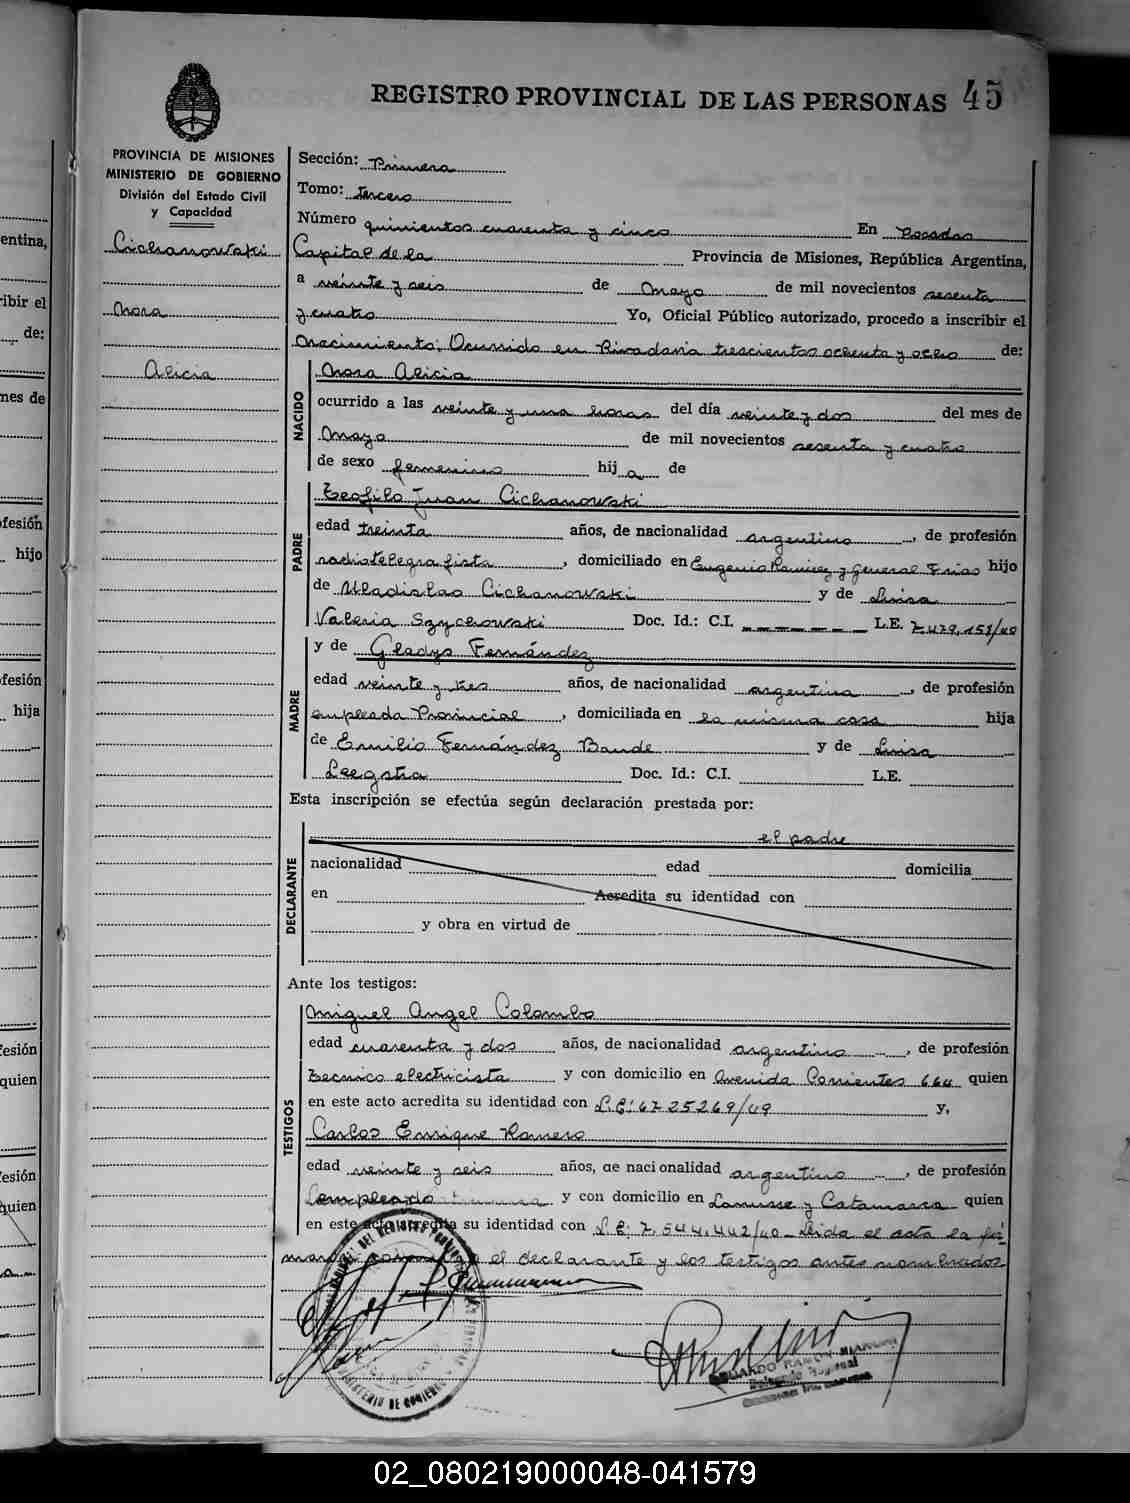 REGISTRO PROVINCIAL DE LAS PERSONAS 45
PROVINCIA DE MISIONES
MINISTERIO DE GOBIERNO
División del Estado Civil
y Capacidad
Cichanowski
Nora
Alicia
Sección: Primera
Tomo: tercero
Número quinientos cuarenta y cinco En Posadas
Capital de la Provincia de Misiones, República Argentina,
a veinte y seis de Mayo de mil novecientos sesenta
y cuatro Yo, Oficial Público autorizado, procedo a inscribir el
Nacimiento; Ocurrido en Rivadavia trescientos ochenta y ocho de:
NACIDO
Nora Alicia
ocurrido a las veinte y una horas del día veinte y dos del mes de
Mayo de mil novecientos sesenta y cuatro
de sexo femenino hij a de
PADRE
Teofilo Juan Cichanowski
edad treinta años, de nacionalidad argentino, de profesión
radiotelegrafista, domiciliado en Eugenio Ramirez y General Frias hijo
de Uladislao Cichanowski y de Luisa
Valeria Szychowski Doc. Id.: C.I. L.E. 7.479.151/40
MADRE
y de Gladys Fernández
edad veinte y tres años, de nacionalidad argentina, de profesión
empleada Provincial, domiciliada en la misma casa hija
de Emilio Fernández Baude y de Luisa
Leegstra Doc. Id.: C.I. L.E.
Esta inscripción se efectúa según declaración prestada por:
DECLARANTE
el padre
nacionalidad edad domicilia
en Acredita su identidad con
y obra en virtud de
Ante los testigos:
TESTIGOS
Miguel Angel Colombo
edad cuarenta y dos años, de nacionalidad argentino, de profesión
Tecnico electricista y con domicilio en Avenida Corrientes 664 quien
en este acto acredita su identidad con L.E: 6725269/49 y,
Carlos Enrique Romero
edad veinte y seis años, de nacionalidad argentino, de profesión
empleado y con domicilio en Lanusse y Catamarca quien
en este acto acredita su identidad con L.E: 7.544.442/40 Leida el acta la fir-
man el declarante y los testigos antes nombrados
EDUARDO RAMON
Delegado Regional
entina,
ribir el
de:
nes de
fesión
hijo
fesión
hija
esión
quien
esión
quien
02_080219000048-041579